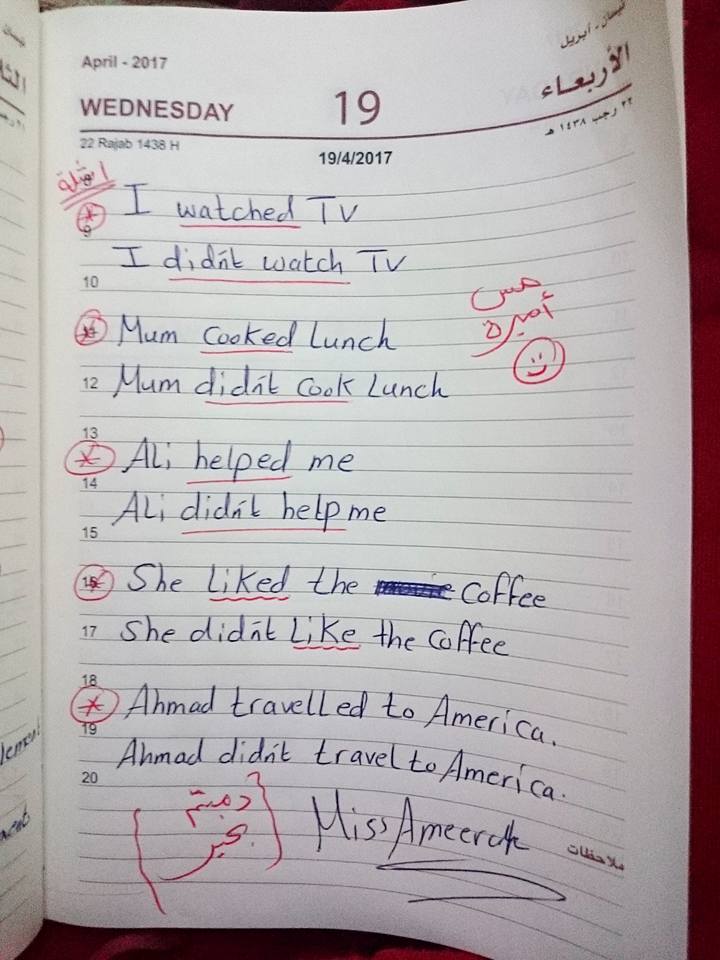 April - 2017
نيسان - أبريل
WEDNESDAY 19 الأربعاء
22 Rajab 1438 H
٢٢ رجب ١٤٣٨ هـ
19/4/2017
امثلة
I watched TV
9
I didn't watch TV
10
مس
أميرة
Mum cooked Lunch
12 Mum didn't cook Lunch
13
Ali helped me
14
Ali didn't help me
15
She liked the coffee
17 She didn't like the coffee
18
Ahmad travelled to America.
19
Ahmad didn't travel to America.
20
دمتم
بخير
Miss Ameerah
ملاحظات